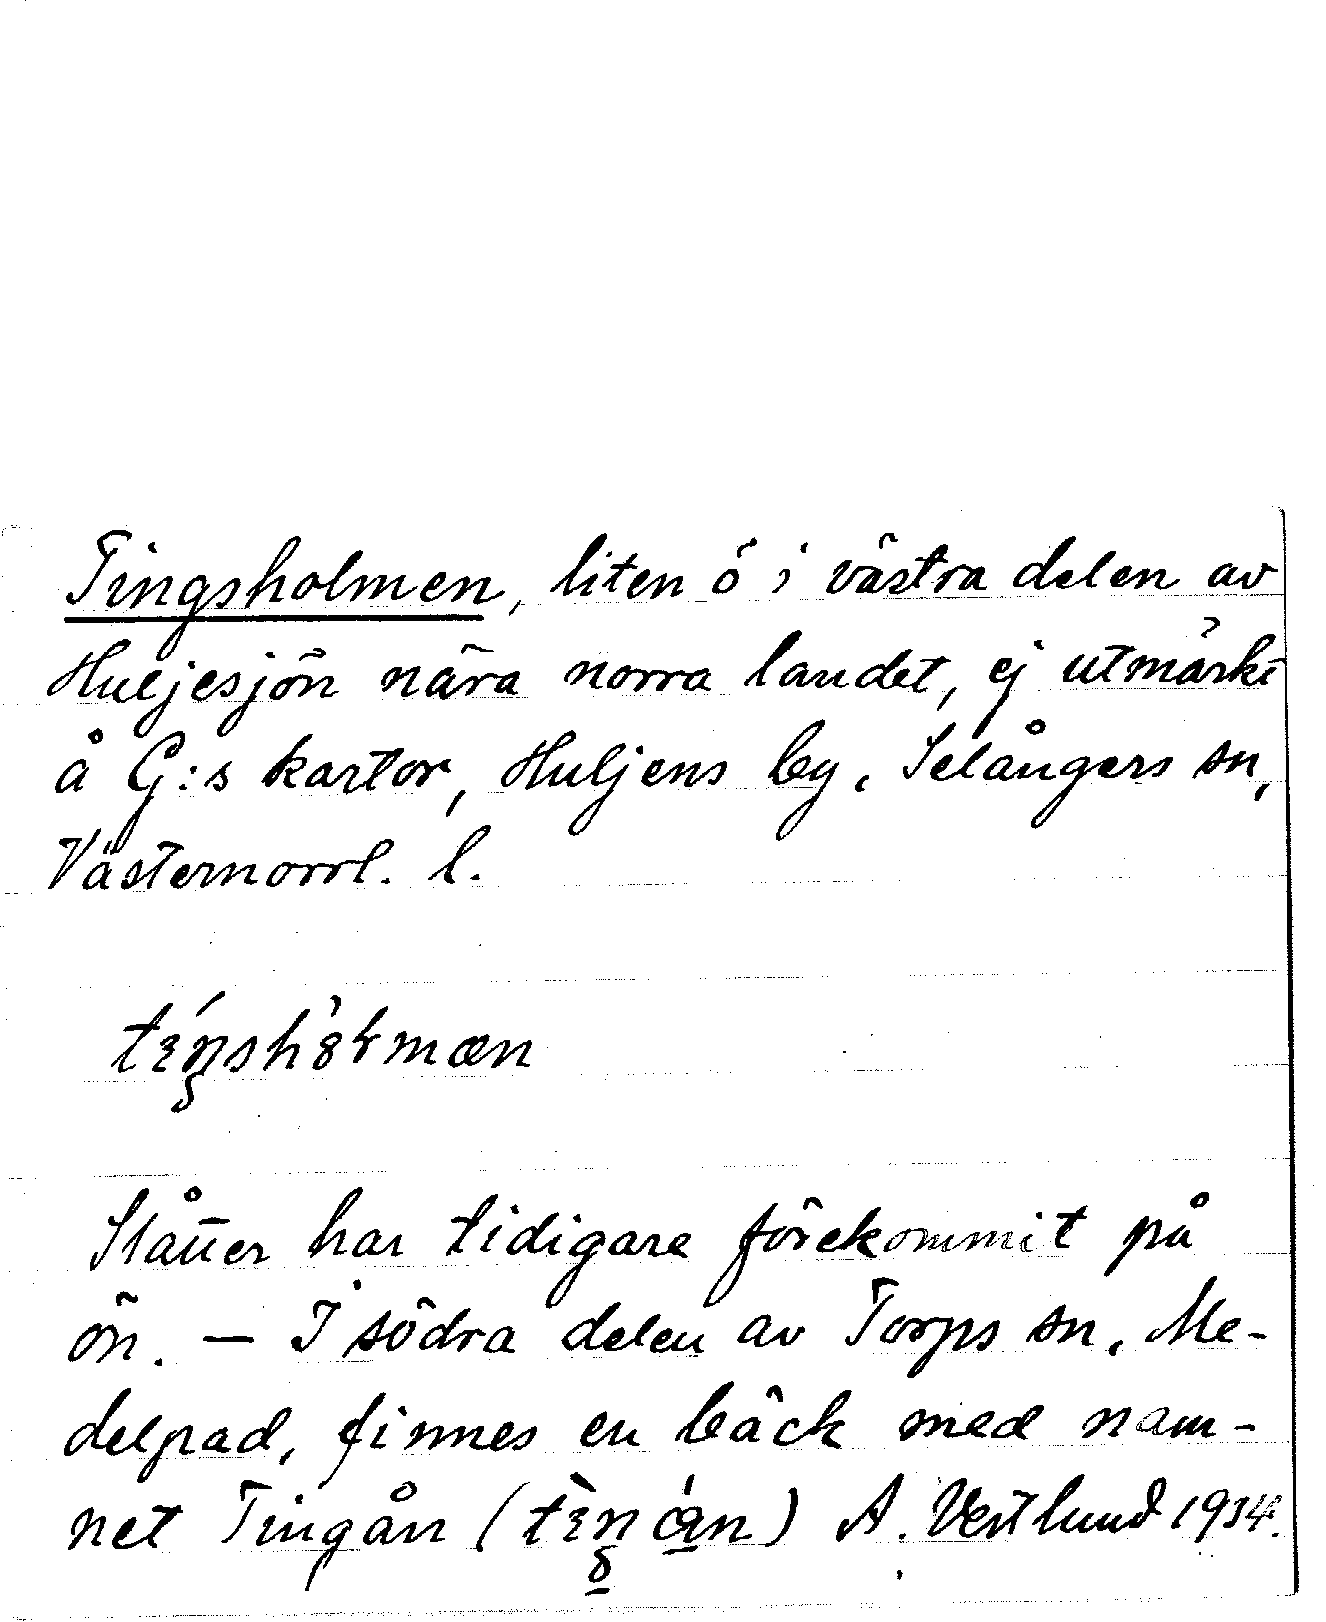 Tingsholmen, liten ö i västra delen av
Huljesjön nära norra landet, ej utmärkt
å G:s kartor, Huljens by, Selångers sn,
Västernorrl. l.
Slåtter har tidigare förekommit på
ön. — I södra delen av Torps sn, Me-
delpad, finnes en bäck med nam-
net Tingån A. Vestlund 1934.